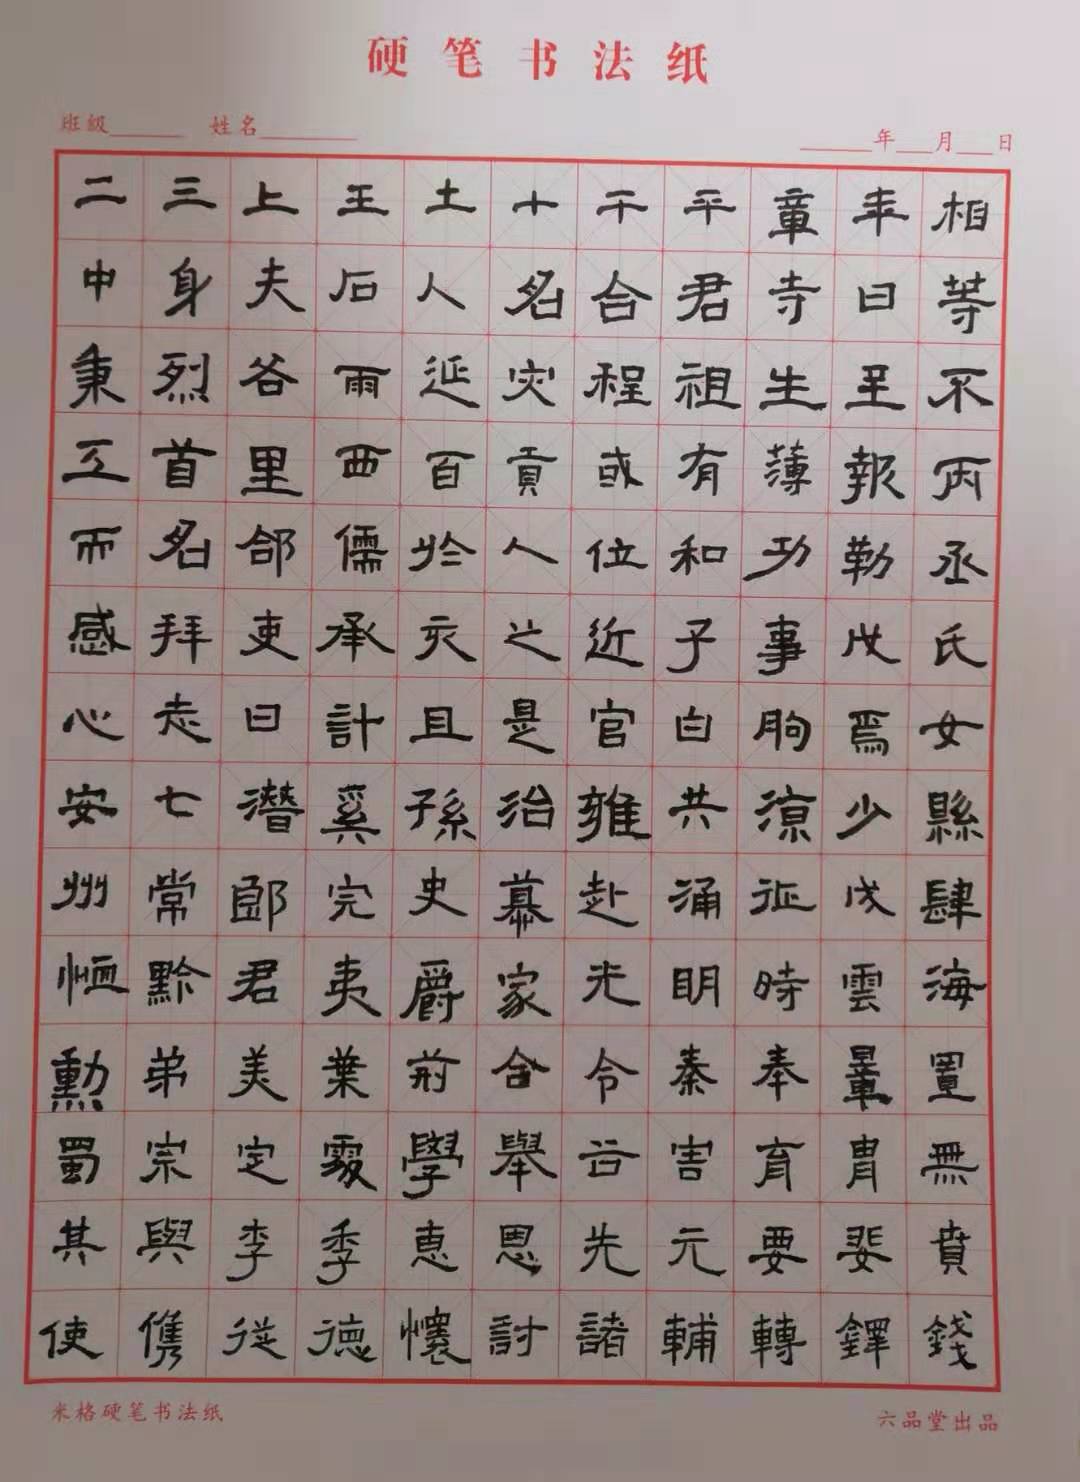 硬笔书法纸
班级______ 姓名______ ______年___月___日
二三上王土十干平章年相
中身夫石人名合君寺曰等
秉烈谷雨延灾程祖生里不
工首里西百貢或有薄報丙
而名郃儒於人位和功勒丞
感拜吏承亥之近子事戊氏
心志曰計且是官白朐焉女
安七潛奚孫治雍共涼少縣
州常郎完史慕赴涌征戍肆
恤黔君夷爵家光明時雲海
勳弟美葉前合令秦奉置
蜀宗定覆學舉谷害育胄無
其與李季惠思先元要斐賁
使儁從德懷討諸輔轉鐸錢
米格硬笔书法纸 六品堂出品